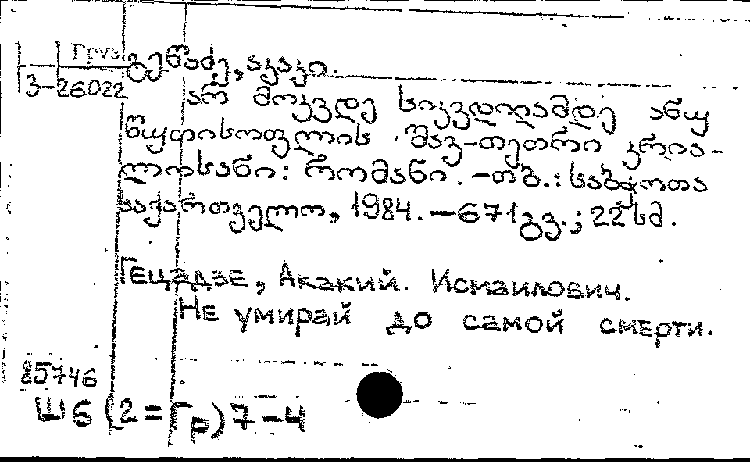 Груз
გეწაძე, აკაკი.
3-26022
არ მოკვდე სიკვდილამდე ანუ
წყლისოფლის შავ-თეთრი კრია-
ლოსანი: რომანი. -თბ.: საბჭოთა
საქართველო, 1984. -671გვ.; 22სმ.
Гецадзе, Акакий. Исмаилович.
Не умирай до самой смерти.
85746
Ш6(2=Гр)7-4